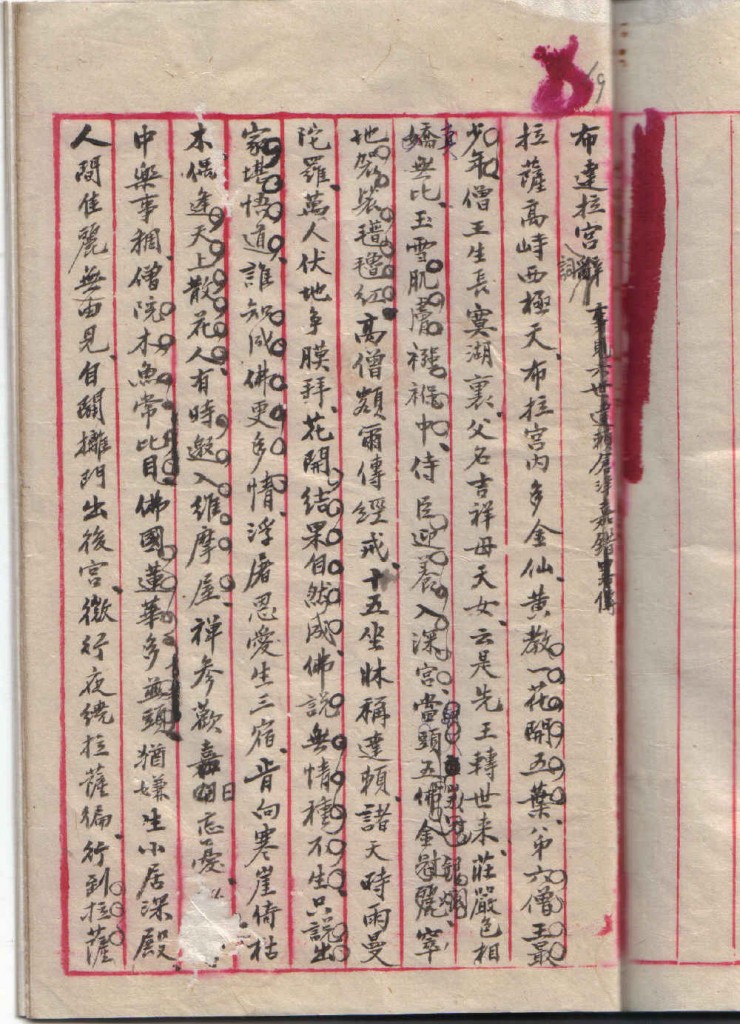 布達拉宮辭詞 事見六世達賴倉洋嘉錯略傳
拉薩高峙西極天、布拉宮內多金仙、黃教一花開五葉、第六僧王最
少年、僧王生長寞湖裏、父名吉祥母天女、云是先王轉世来、莊嚴色相
嬌無比、玉雪肌膚襁褓中、侍臣迎養入深宮、當頭五佛金冠麗、窣
地袈裟氆氌紅、高僧額爾傳經戒、十五坐牀稱達賴、諸天時雨曼
陀羅、萬人伏地爭膜拜、花開結果自然成、佛說無情種不生、只說出
家堪悟道、誰知成佛更多情、浮屠恩愛生三宿、肯向寒崖倚枯
木、偶逢天上散花人、有時邀入維摩屋、禪參歡日忘憂
中樂事稠、僧院木魚常比目、佛國蓮華多並頭、猶嫌生小居深殿、
人間佳麗無由見、自關攡門出後宮、微行夜繞拉薩徧、行到拉薩